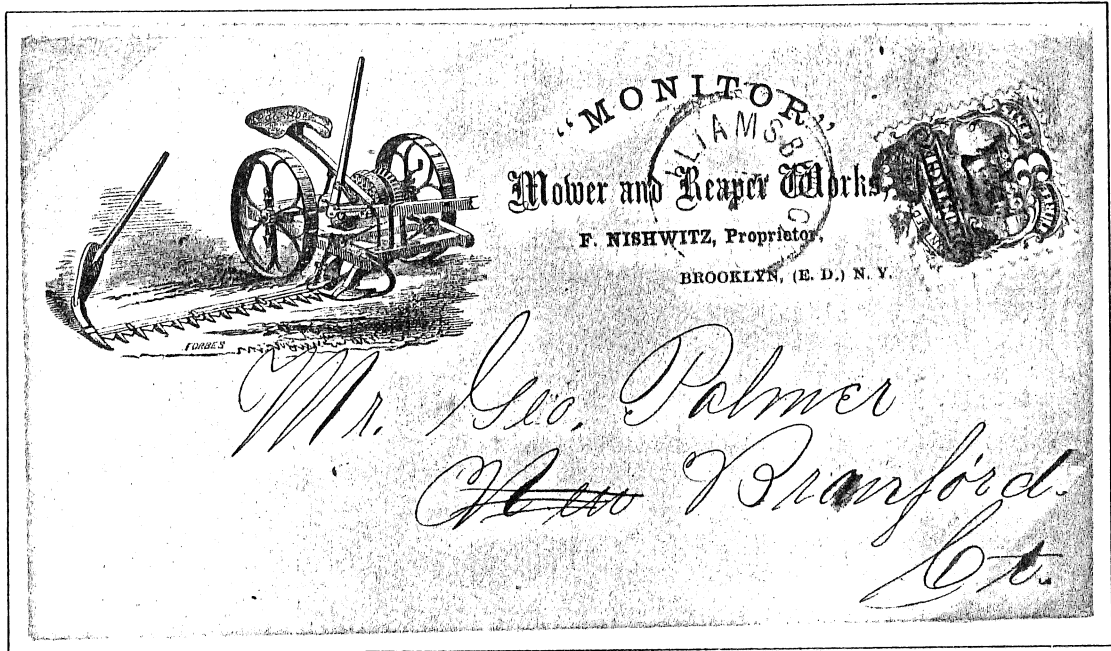 "MONITOR"
Mower and Reaper Works,
F. NISHWITZ, Proprietor,
BROOKLYN, (E. D.) N. Y.
FORBES
Mr. Geo. Palmer
New Branford.
Ct.